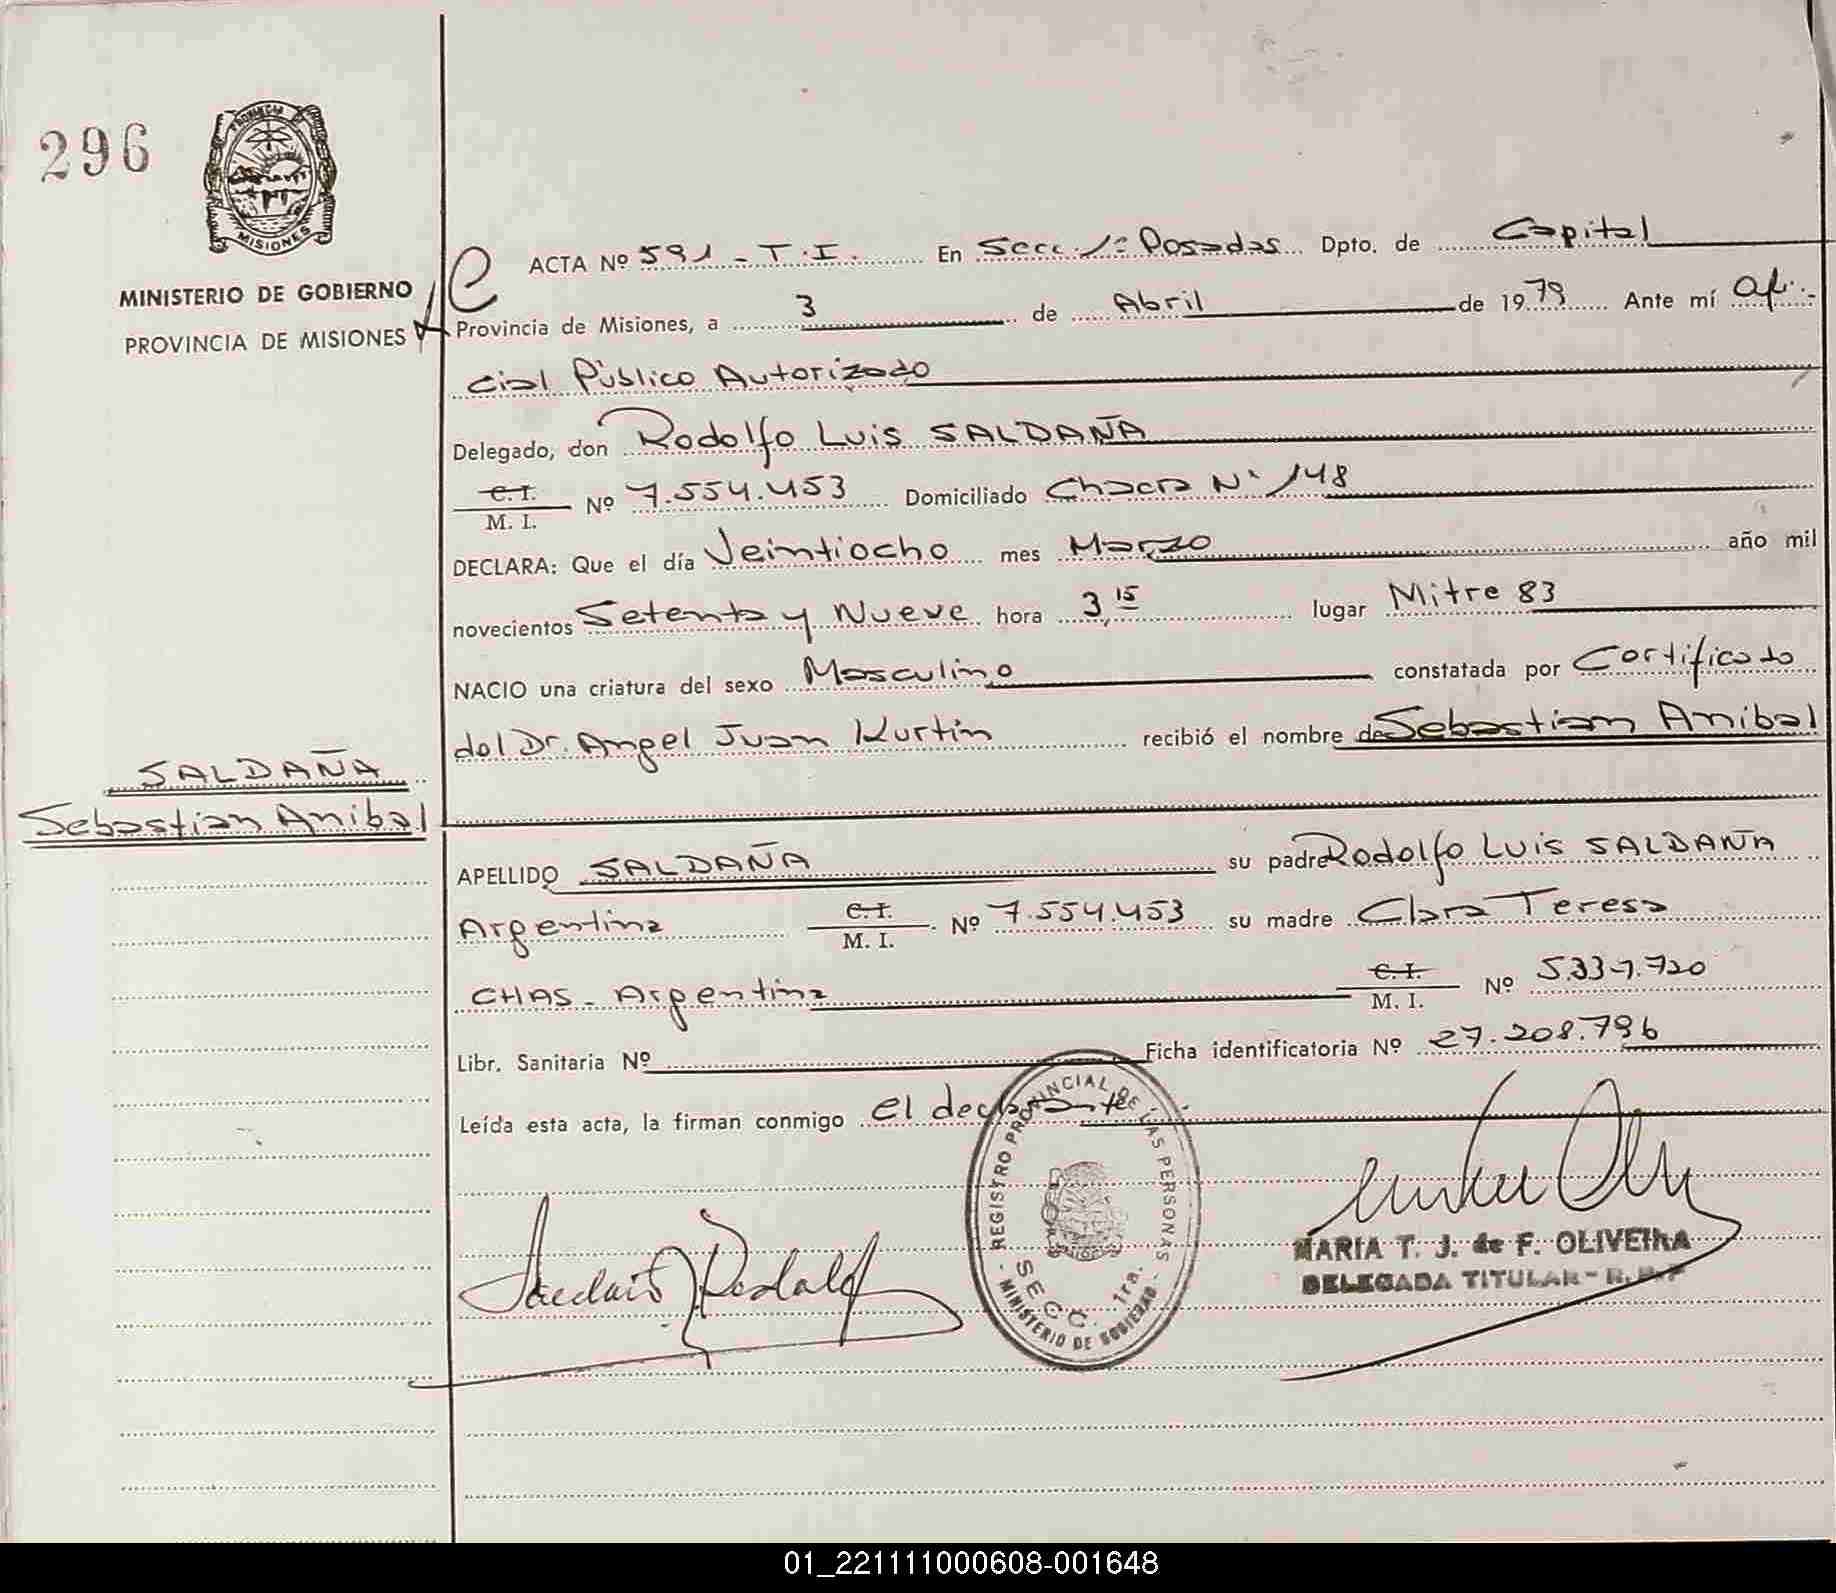 296
PROVINCIA DE
MISIONES
MINISTERIO DE GOBIERNO
PROVINCIA DE MISIONES
ACTA Nº 591 - T.I. En Secc. 1º Posadas Dpto. de Capital
Provincia de Misiones, a 3 de Abril de 1979 Ante mí Ofi-
cial Público Autorizado
Delegado, don Rodolfo Luis SALDAÑA
C.I.
M. I. Nº 7.554.453 Domiciliado Chacra Nº 148
DECLARA: Que el día Veintiocho mes Marzo año mil
novecientos Setenta y Nueve hora 3,15 lugar Mitre 83
NACIO una criatura del sexo Masculino constatada por Certificado
del Dr. Angel Juan Kurtin recibió el nombre de Sebastian Anibal
SALDAÑA
Sebastian Anibal
APELLIDO SALDAÑA su padre Rodolfo Luis SALDAÑA
Argentina C.I. M. I. Nº 7.554.453 su madre Clara Teresa
CHAS - Argentina C.I. M. I. Nº 5.337.720
Libr. Sanitaria Nº Ficha identificatoria Nº 27.208.796
Leída esta acta, la firman conmigo el declarante
REGISTRO PROVINCIAL DE LAS PERSONAS
SECC. 1ra.
MINISTERIO DE GOBIERNO
MARIA T. J. de F. OLIVEIRA
DELEGADA TITULAR - R.P.P
01_221111000608-001648